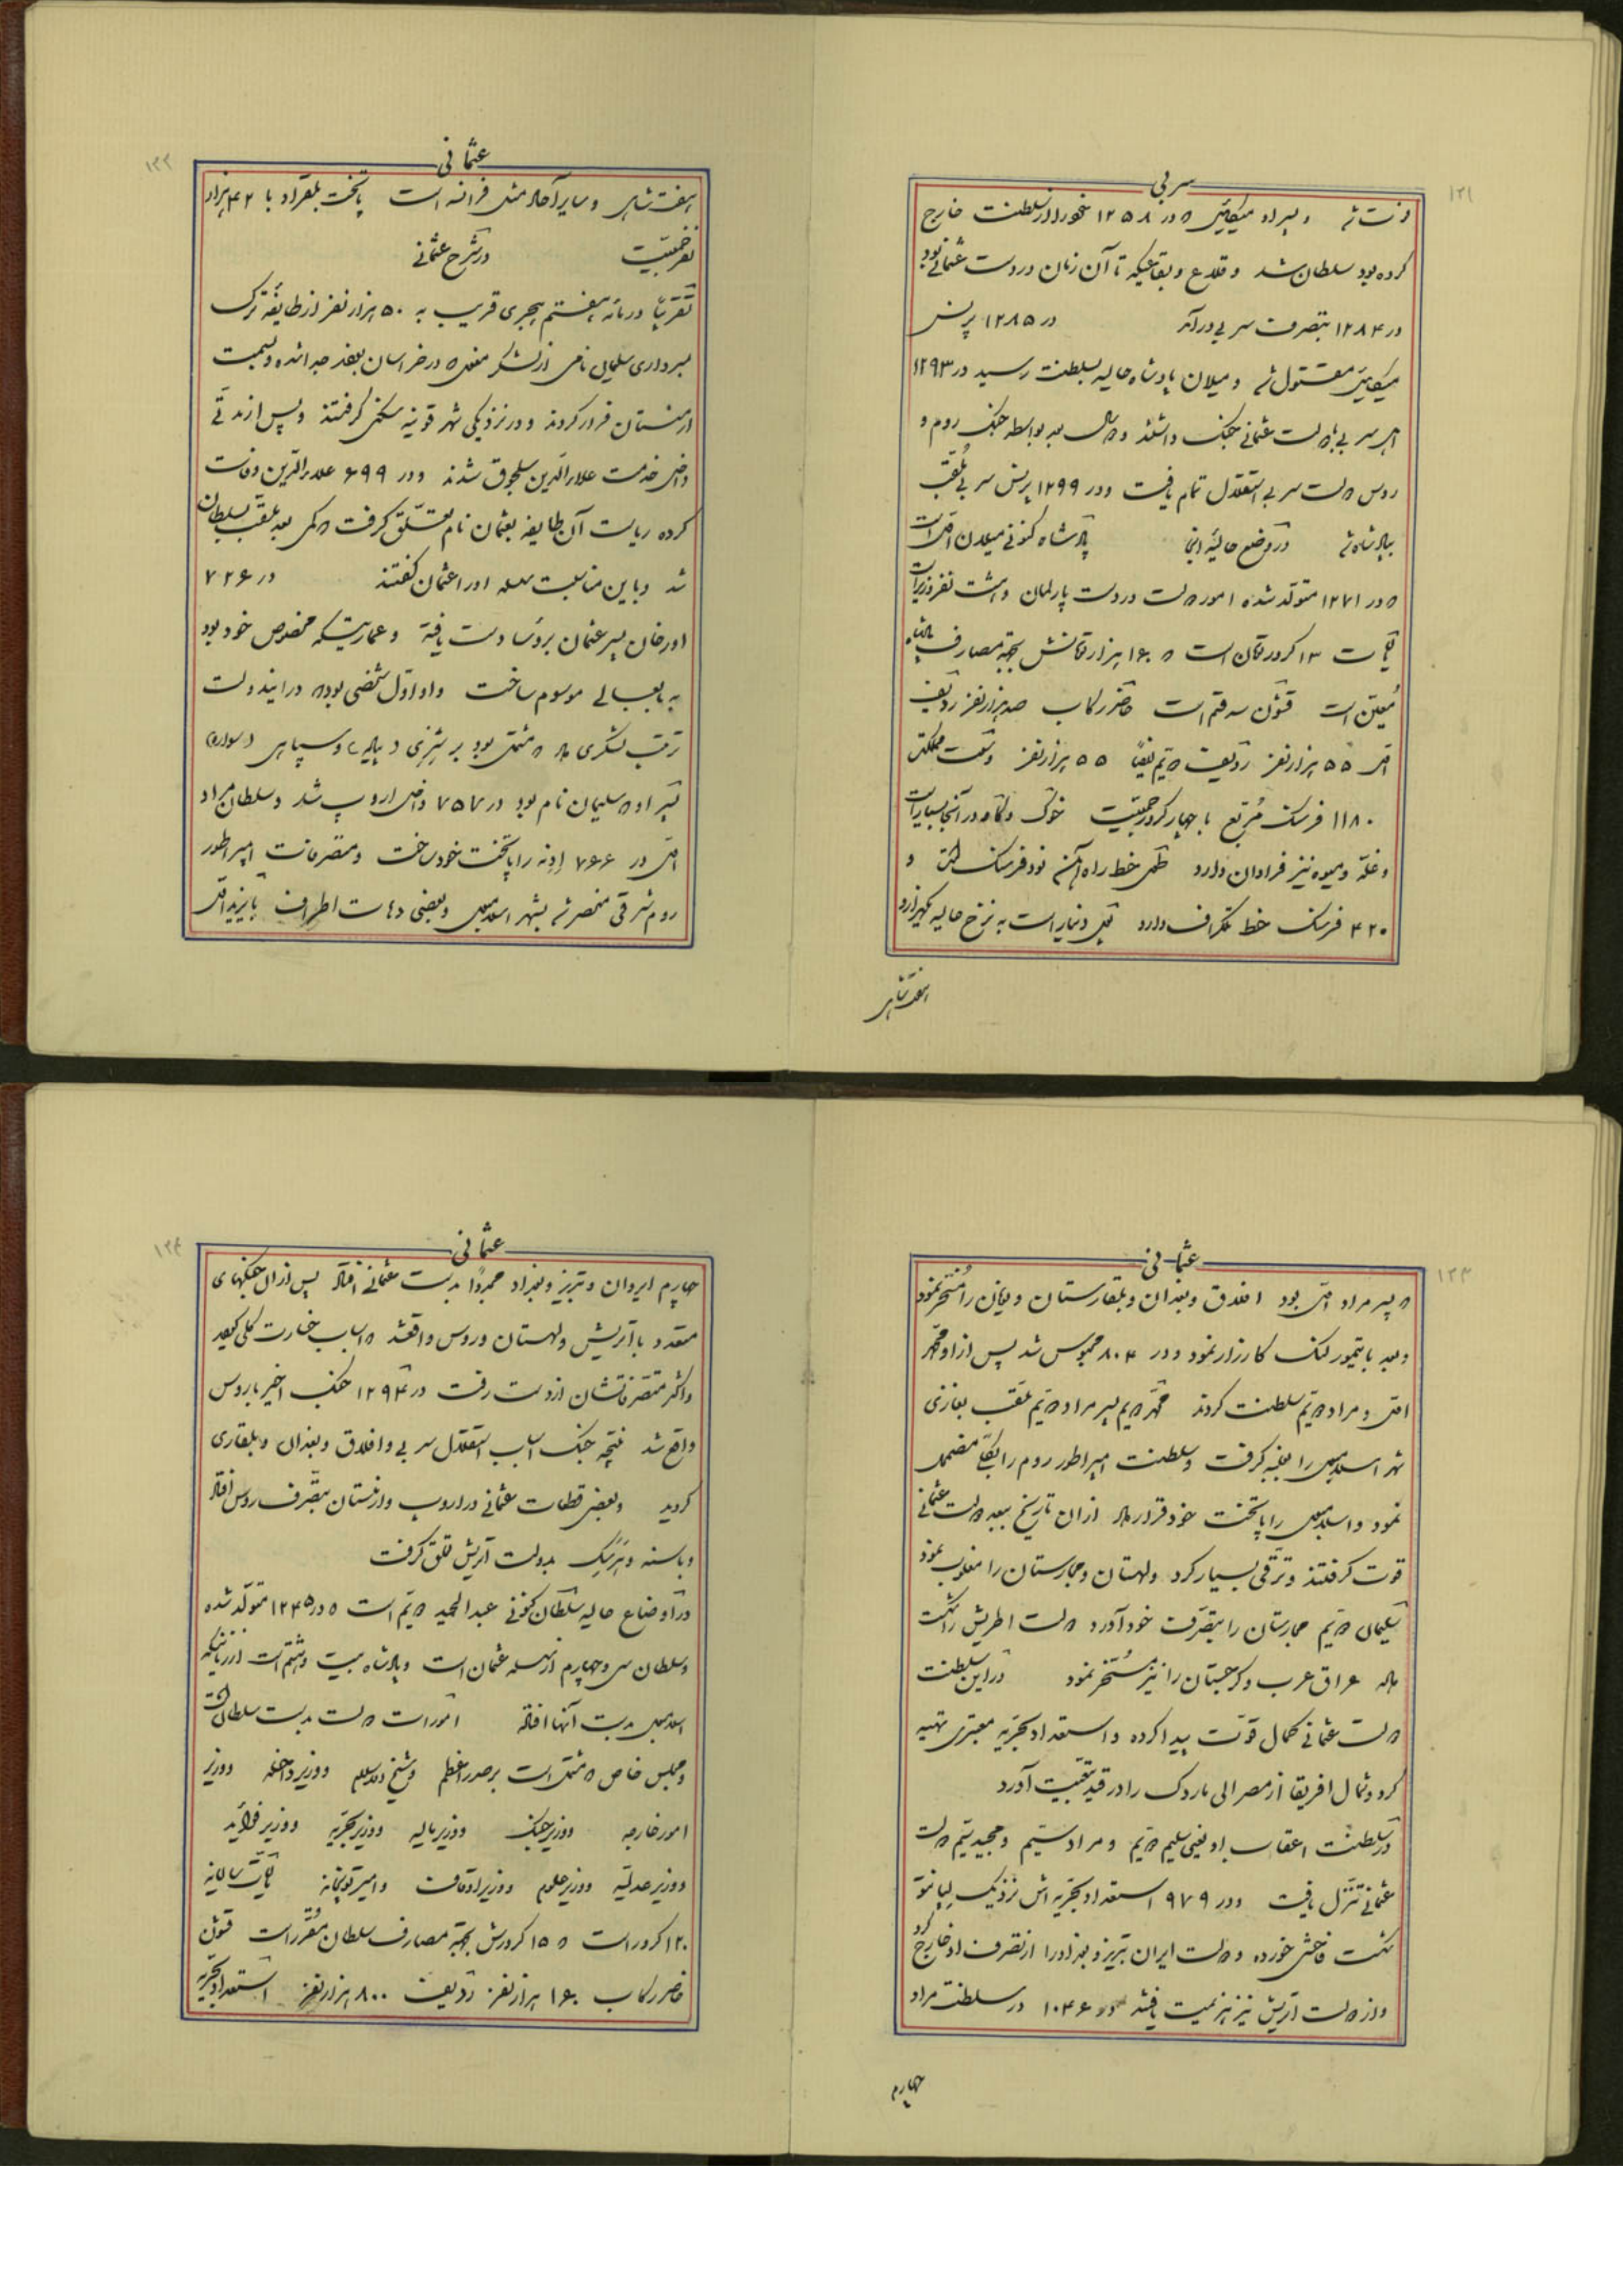 ۱۲۱
سربی
و پسر او میکائیل که در ۱۲۵۸ خود را از سلطنت خارج
کرده بود سلطان شد و قلاع و بقاعیکه تا آن زمان در دست عثمانی بود
در ۱۲۸۴ بتصرف سربی درآمد در ۱۲۸۵ پرنس
میکائیل مقتول شد و میلان پادشاه حالیه بسلطنت رسید در ۱۲۹۳
اهل سربی با دولت عثمانی جنگ داشتند و سال بعد بواسطه جنگ روم و
روس دولت سربی استقلال تمام یافت و در ۱۲۹۹ پرنس سربی ملقب
بپادشاه شد در وضع حالیه آنجا پادشاه کنونی میلان اول است
که در ۱۲۷۱ متولد شده امور دولت در دست پارلمان و هشت نفر وزیر است
مالیات ۱۳ کرور تومان است که ۱۶۰ هزار تومانش بجهة مصارف پادشاه
معین است قشون سه قسم است حاضر رکاب صد هزار نفر ردیف
اول ۵۵ هزار نفر ردیف دویم تقریباً ۵۵ هزار نفر وسعت مملکتش
۱۱۸۰ فرسنگ مربع با چهار کرور جمعیت خوک و گاو در آنجا بسیار است
و غله و میوه نیز فراوان دارد طول خط راه آهن نود فرسنگ است و
۴۲۰ فرسنگ خط تلگراف دارد پول دینار است به نرخ حالیه یکهزار و
هفت شاهی
۱۲۲
عثمانی
هفت شاهی و سایر احوال مثل فرانسه است پایتخت بلغراد با ۴۲ هزار
نفر جمعیت در شرح عثمانی
تقریباً در مائه هفتم هجری قریب به ۵۰ هزار نفر از طایفه ترک
بسرداری سلیمان نامی از لشکر مغول که در خراسان بودند جدا شده و بسمت
ارمنستان فرار کردند و در نزدیکی شهر قونیه سکنی گرفتند و پس از مدتی
داخل خدمت علاءالدین سلجوق شدند و در ۶۹۹ علاءالدین وفات
کرده ریاست آن طایفه بعثمان نام تعلق گرفت که کمی بعد ملقب بسلطان
شد و باین مناسبت سلسله او را عثمان گفتند در ۷۲۶
اورخان پسر عثمان بروسا دست یافته و عمارتیکه مخصوص خود بود
به بابعالی موسوم ساخت و او اول شخصی بود که در این دولت
ترتیب لشکری داد که مشتمل بود بر ینیچری (پیاده) و سپاهی (سواره)
پسر او که سلیمان نام بود در ۷۵۷ داخل اروپ شد و سلطان مراد
اول در ۷۶۶ ادرنه را پایتخت خود ساخت و متصرفات امپراطور
روم شرقی منحصر شد بشهر اسلامبول و بعضی دهات اطراف بایزید اول
۱۲۳
عثمانی
که پسر مراد اول بود افلاق و بغدان و بلغارستان و یونان را مسخر نمود
و بعد با تیمور لنگ کارزار نمود و در ۸۰۴ محبوس شد پس از او محمد
اول و مراد دویم سلطنت کردند محمد دویم پسر مراد دویم ملقب بغازی
شهر اسلامبول را بغلبه گرفت و سلطنت امپراطور روم را بکلی مضمحل
نمود و اسلامبول را پایتخت خود قرار داد از آن تاریخ ببعد دولت عثمانی
قوت گرفتند و ترقی بسیار کرد و لهستان و مجارستان را مغلوب نمود
سلیمان دویم مجارستان را بتصرف خود آورد دولت اطریش را شکست
داد عراق عرب و گرجستان را نیز مسخر نمود در این سلطنت
دولت عثمانی کمال قوت پیدا کرده و استعداد بحریه معتبری تهیه
کرد و شمال افریقا از مصر الی ماروک را در قید تبعیت آورد
در سلطنت اعقاب او یعنی سلیم دویم و مراد سیم و محمد سیم دولت
عثمانی تنزل یافت و در ۹۷۹ استعداد بحریه اش نزدیک لپانتو
شکست فاحش خورده و دولت ایران تبریز و بغداد را از تصرف او خارج کرد
و از دولت اتریش نیز هزیمت یافتند و در ۱۰۴۶ در سلطنت مراد
چهارم
۱۲۴
عثمانی
چهارم ایروان و تبریز و بغداد مجدداً بدست عثمانی افتاد پس از آن جنگهای
متعدد با اتریش و لهستان و روس واقع شد که اسباب خسارت کلی گردید
و اکثر متصرفاتشان از دست رفت در ۱۲۹۴ جنگ اخیر با روس
واقع شد نتیجه جنگ اسباب استقلال سربی و افلاق و بغدان و بلغاری
گردید و بعضی قطعات عثمانی در اروپ و ارمنستان بتصرف روس افتاد
و باسنه و هرزگ بدولت اتریش تعلق گرفت
در اوضاع حالیه سلطان کنونی عبدالحمید دویم است که در ۱۲۴۵ متولد شده
و سلطان سی و چهارم از سلسله عثمان است و پادشاه بیست و هشتم است از زمانیکه
اسلامبول بدست آنها افتاده امورات دولت بدست سلطان است
و مجلس خاص که مشتمل است بر صدر اعظم و شیخ الاسلام و وزیر داخله و وزیر
امور خارجه و وزیر جنگ و وزیر مالیه و وزیر بحریه و وزیر فواید
و وزیر عدلیه و وزیر علوم و وزیر اوقاف و امیر توپخانه مالیات سالیانه
۱۲۰ کرور است که ۱۵ کرورش بجهة مصارف سلطان مقرر است قشون
حاضر رکاب ۱۶۰ هزار نفر ردیف ۸۰۰ هزار نفر استعداد بحریه